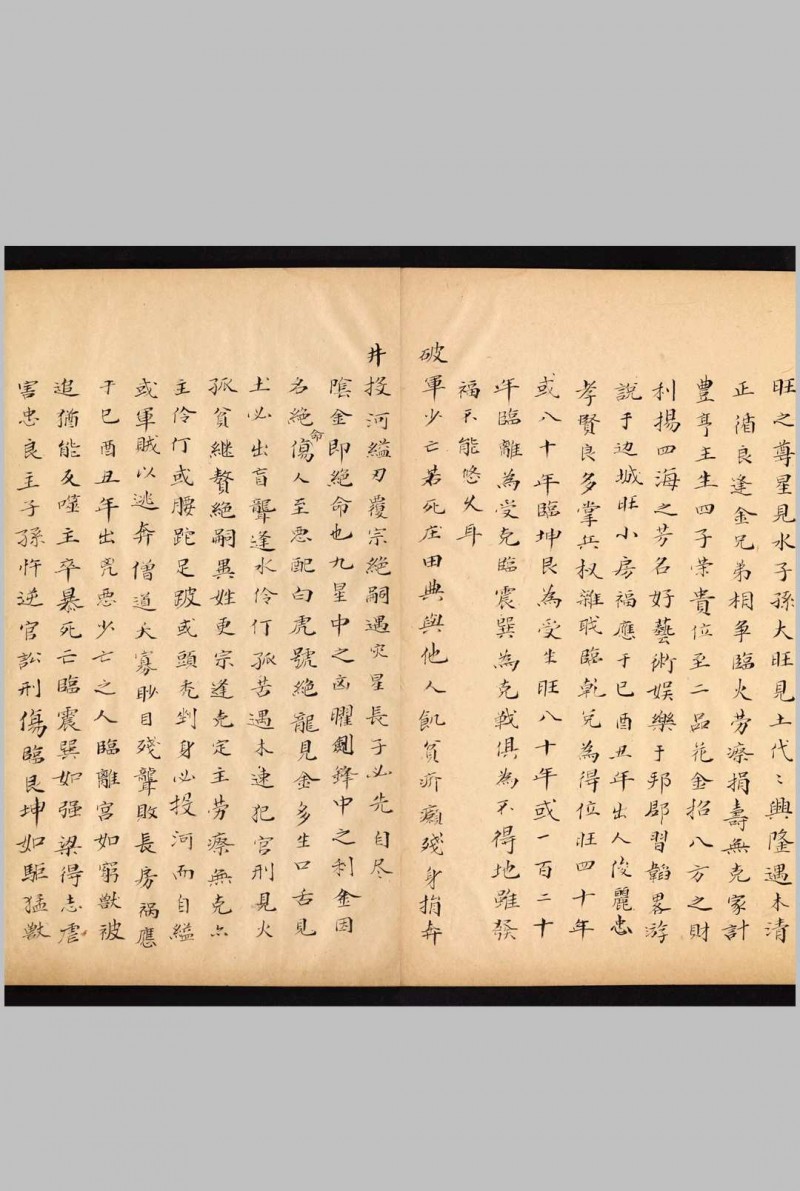 旺之尊星見水子孫大旺見土代〻興隆遇木清
正循良逢金兄弟相爭臨火劳瘵捐壽無克家計
豐亨主生四子荣貴位至二品花金招八方之財
利揚四海之芳名好藝術娱樂于邦郡習韜畧游
說于边城旺小房福應于巳酉丑年出人俊麗忠
孝賢良多掌兵权雜职臨乾兌為得位旺四十年
或八十年臨坤艮為受生旺八十年或一百二十
年臨離為受克臨震巽為克戰俱為不得地雖發
福不能悠久耳
破軍少亡若死庄田典與他人飢貧疥癩殘身捎奔
井投河縊刃覆宗絕嗣遇災星長子必先自尽
陰金即絕命也九星中之凶曜劍鋒中之利金因
名絕命傷人至惡配白虎號絕龍見金多生口舌見
土必出盲聾逢水伶仃孤苦遇木速犯官刑見火
孤貧継贅絕嗣異姓更宗逢克定主劳瘵無克亦
主伶仃或腰跎足跛或頭禿刲身必投河而自縊
或軍賊以逃奔僧道夭寡眇目殘聾敗長房祸應
于巳酉丑年出兇惡少亡之人臨離宮如窮獸被
追猶能反噬主卒暴死亡臨震巽如强梁得志虐
害忠良主子孫忤逆官訟刑傷臨艮坤如驅猛獸